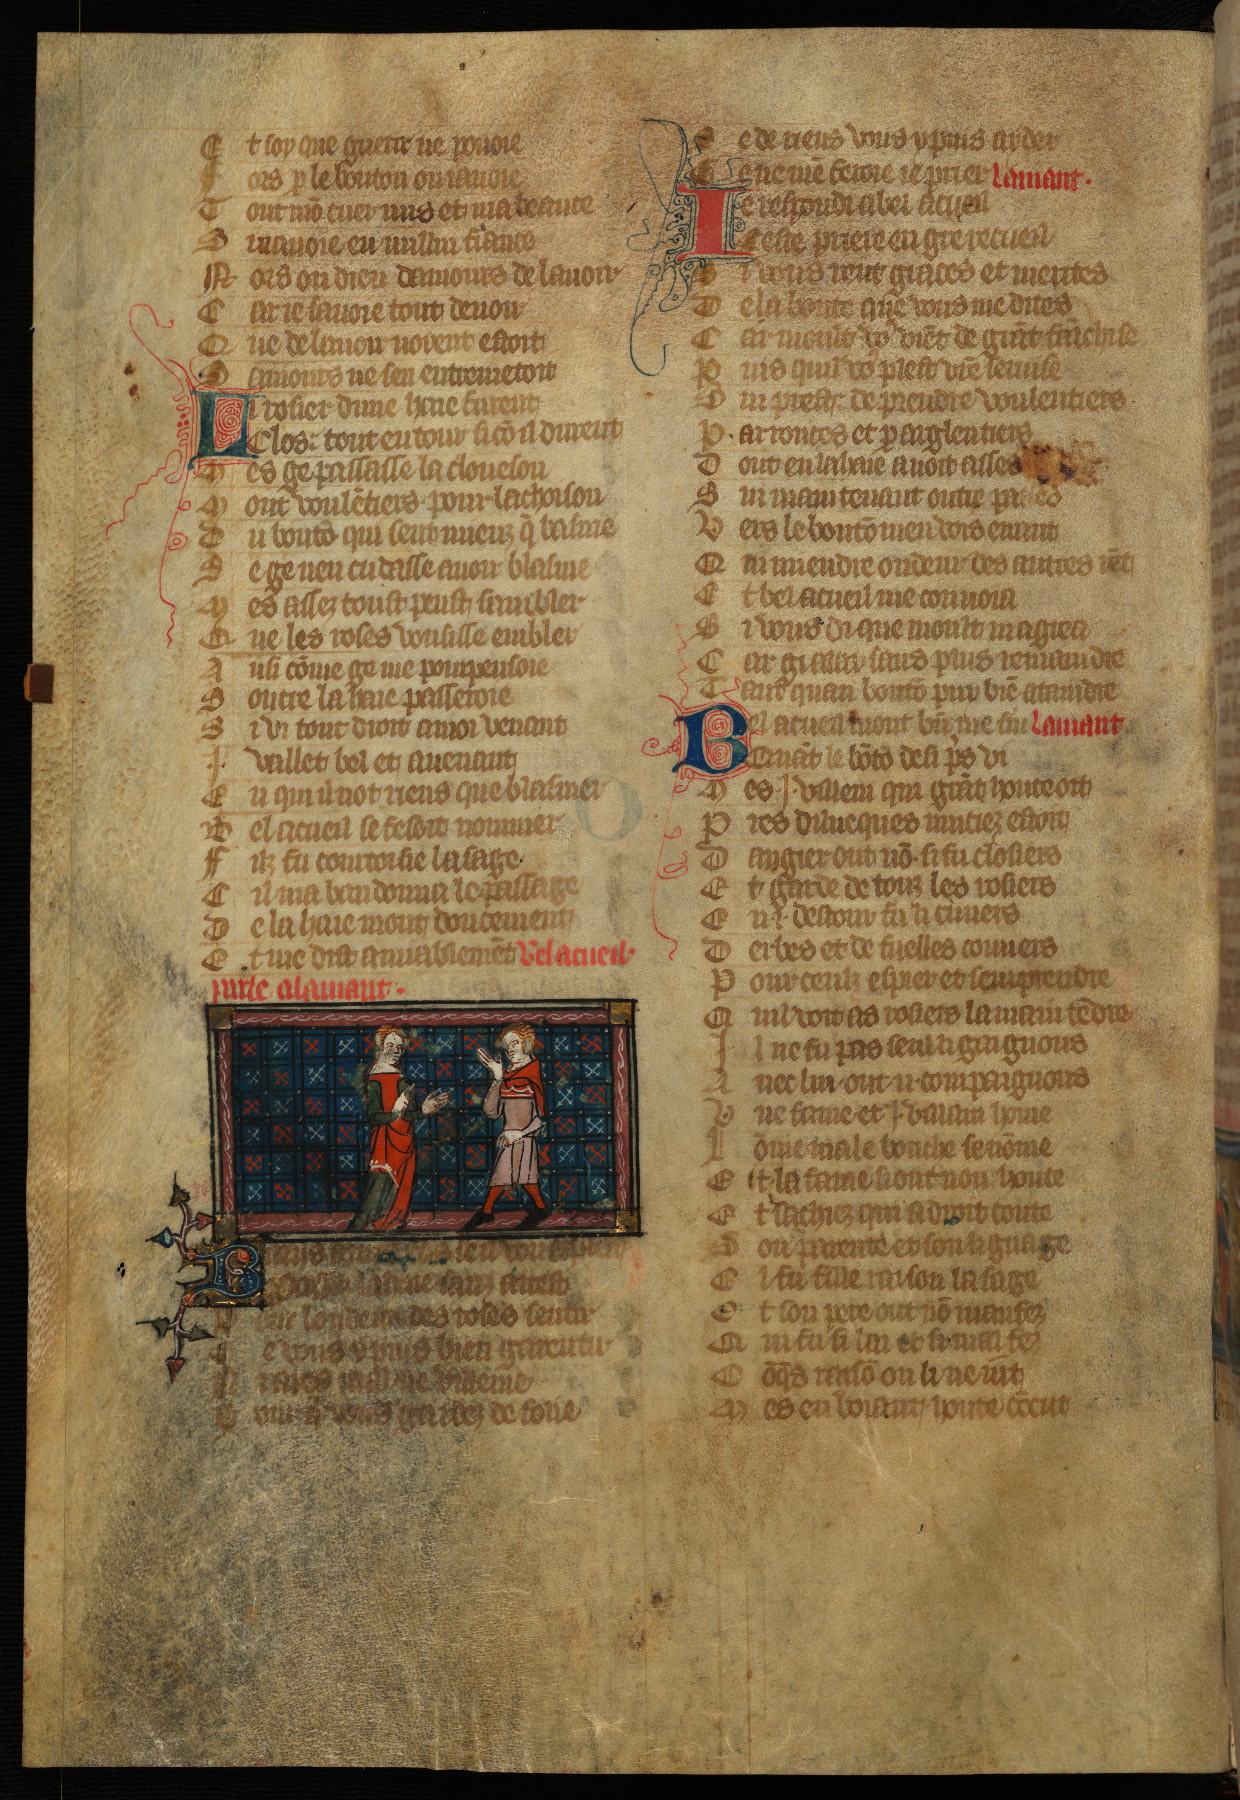 E t soy que guerir ne pouoie
F ors p le bouton ou iauoie
T out mō cuer mis et ma beance
S i nauoie en nullui fiance
N ors ou dieu damours de lauoir
C ar ie sauoie tout de uoir
Q ue de lauoir noient estoit
S amours ne sen entremetoit
L i rosier dune haie furent
Clos tout entour si cō il durent
M es ge passasse la cloueson
M out voulētiers pour lachoison
D u boutō qui sent mieuz q̄ basme
S e ge nen cuidasse auoir blasme
M es assez toust peust sembler
Q ue les roses vousisse embler
A insi cōme ge me pourpensoie
S outre la haie passeroie
S i vi tout droit a moi venant
J vallet bel et auenant
E n qui il not riens que blasmer
B el acueil se fesoit nommer
F ilz fu courtoisie la sage
C il ma bandonna le passage
D e la haie mout doucement
E t me dist amiablemēt Bel acueil
parle a lamant
Passez la haie sanz arest
P our loudeur des roses sentir
J e vous y puis bien garentir
N i aures mal ne villenie
P our q̄ vous gardez de folie
S e de riens vous y puis aydier
J e ne mē feroie ie prier Lamant
Je respondi a bel acueil
Ceste priere en gre recueil
S i vous rent graces et merites
D e la bonte que vous me dites
C ar moult vꝰ viēt de grāt frāchise
P uis quil vꝰ plest vrē seruise
S ui prest de prendre voulentiers
P ar ronces et p arglentiers
D ont en la haie auoit asses
S ui maintenant outre passes
V ers le boutō men vois errant
Q ui miendre oudeur des autres rēt
E t bel acueil me conuoia
S i vous di que moult magrea
C ar
Bel acueil mout bn me sui Lamant
Quāt le bōto de si ps vi
M es J villein qui grāt honte oit
P res diluecques muciez estoit
D angier out nō si fu closiers
E t garde de touz les rosiers
E n J destour fu li cuiuers
D erbes et de fuelles couuers
P our ceulz espier et semprendre
Q uil voit as rosiers la main tēdre
J l ne fu pas seul li gaignons
A nec lui out ii compaignons
V ne fame et J vilain home
L ōme male bouche se nōme
E t la fame si out non honte
E t sachiez qui a droit conte
S on parente et son lignage
E l fu fille raison la sage
E t son pere out nō maufez
Q ui fu si lai et si mal fez
C ōq̄s raisō ou li ne iut
M es en voiant honte cōcut